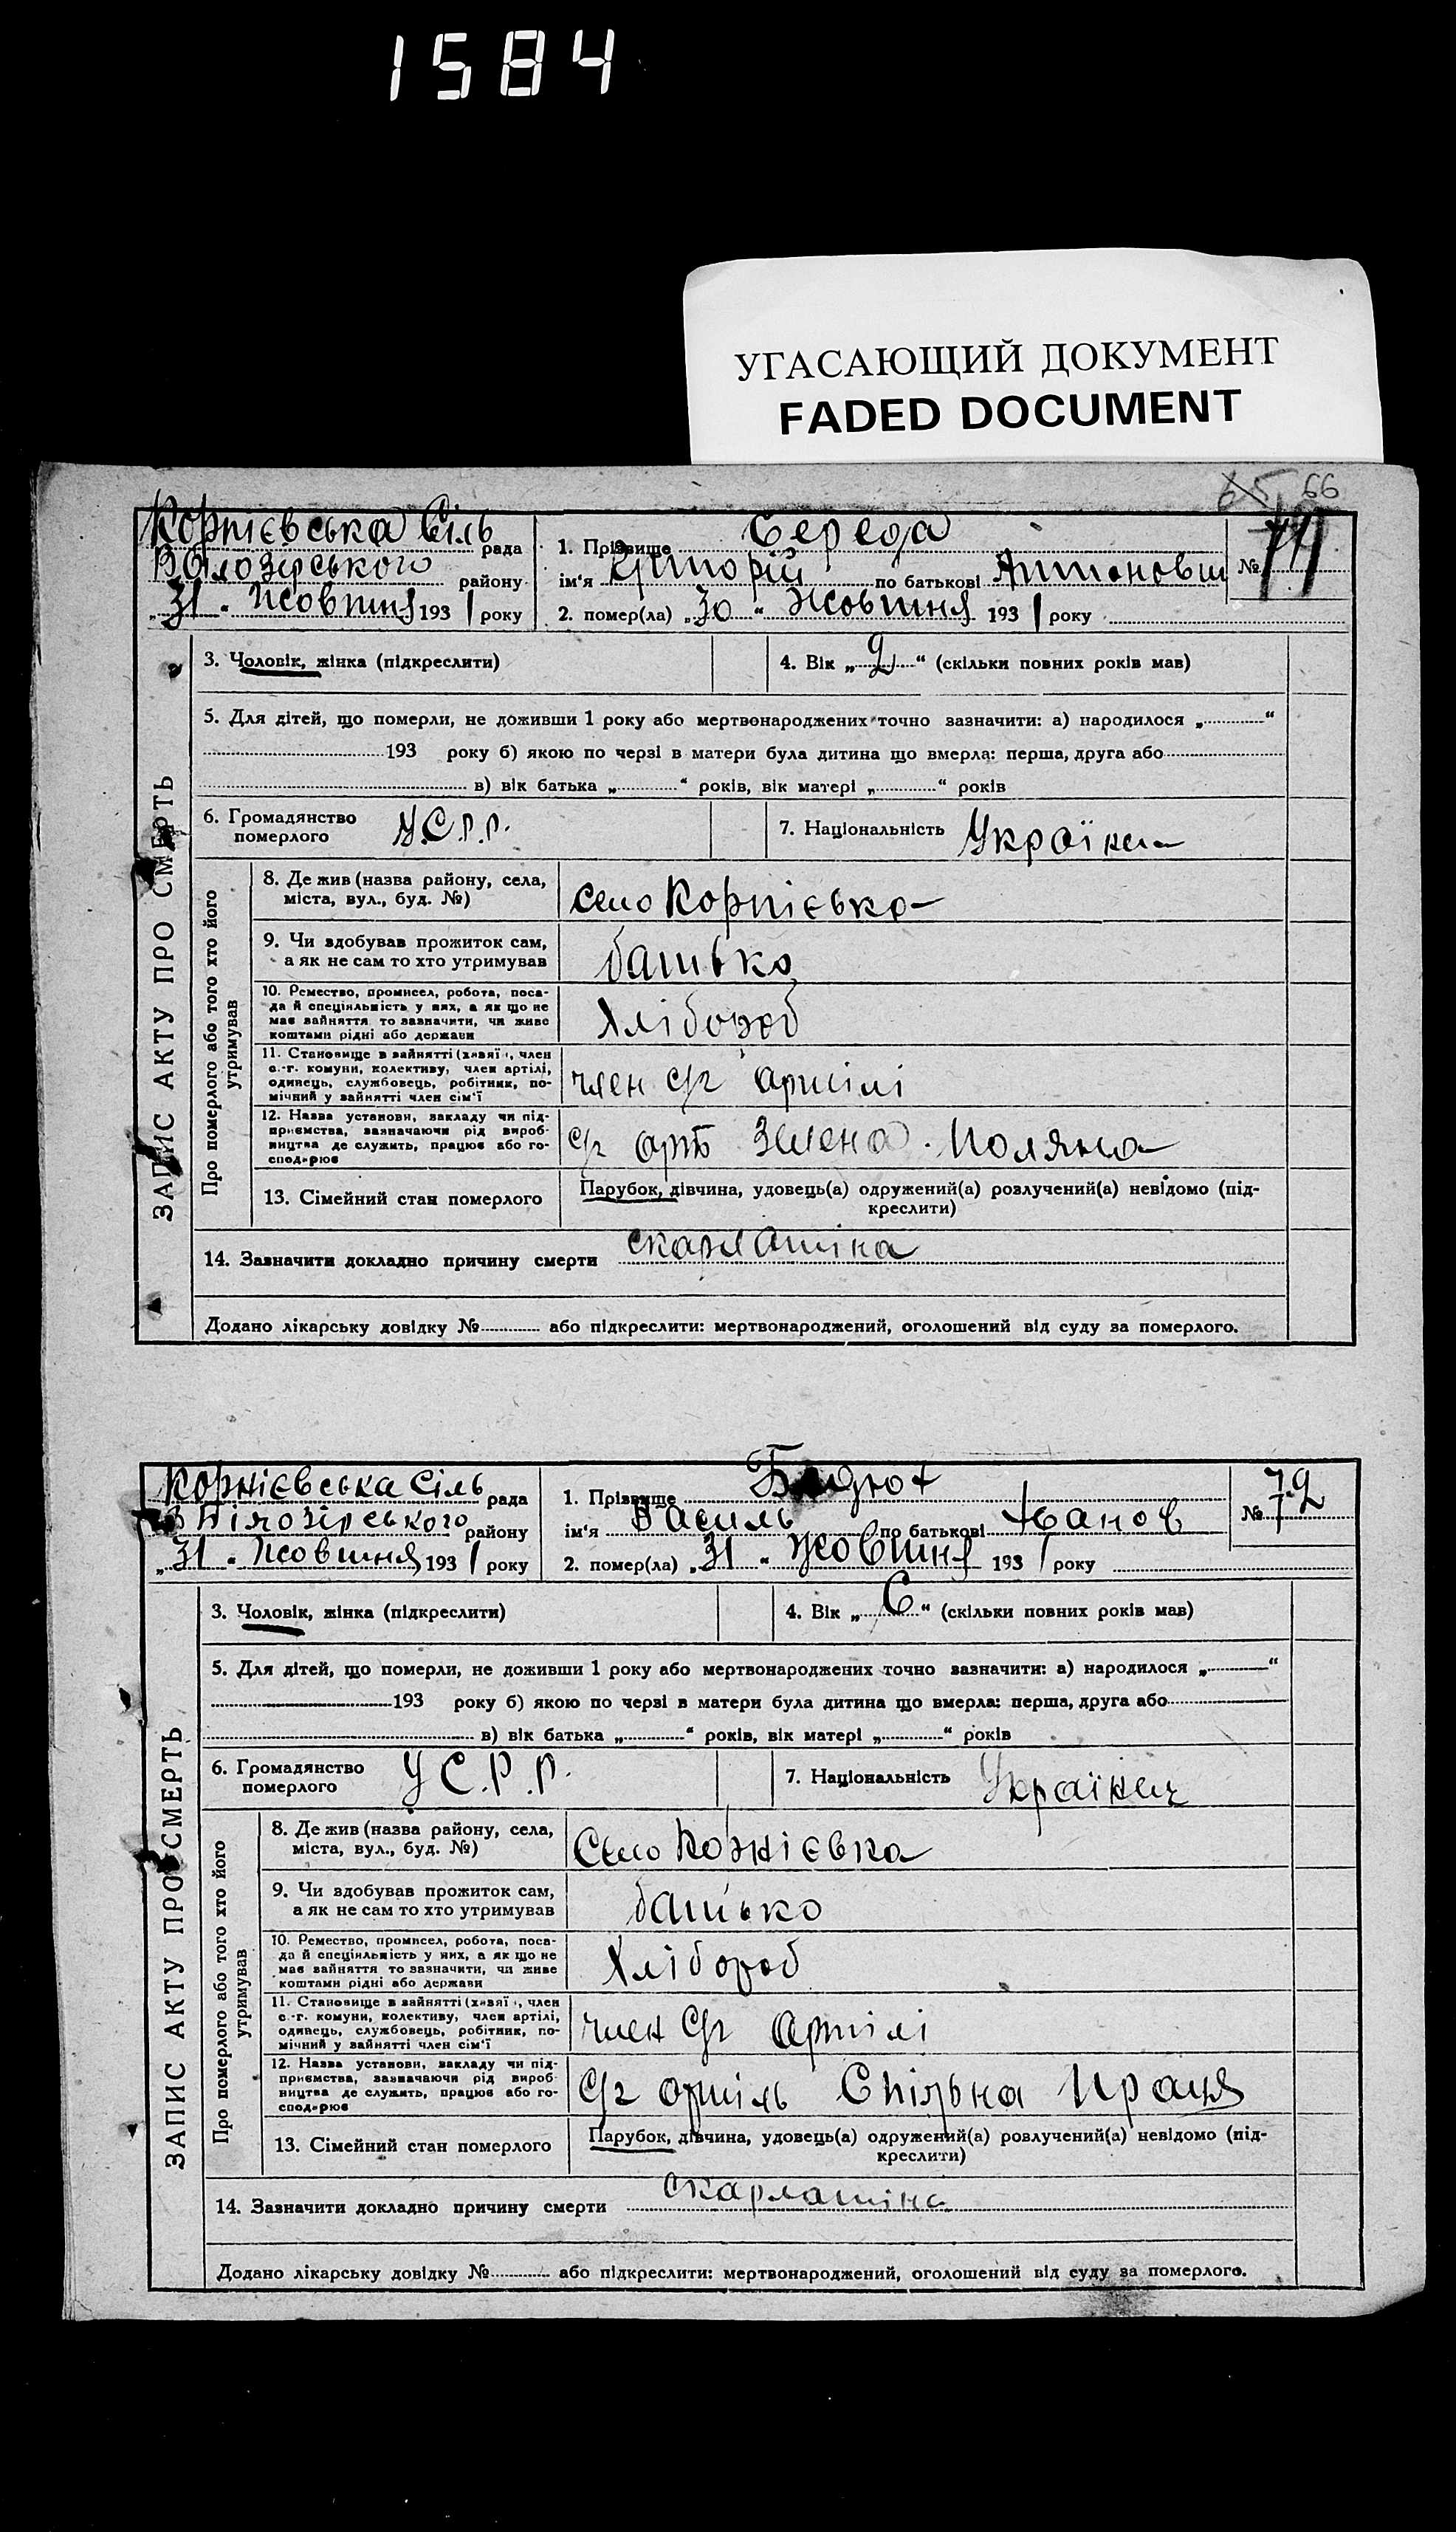 1584
УГАСАЮЩИЙ ДОКУМЕНТ
FADED DOCUMENT
65 66
Корнієвська Сіль рада
Білозірського району
„31“ Жовтня 1931 року
1. Прізвище Середа
ім'я Григорій по батькові Антонович
№ 71
2. помер(ла) „30“ Жовтня 1931 року
ЗАПИС АКТУ ПРО СМЕРТЬ
3. Чоловік, жінка (підкреслити)
4. Вік „2“ (скільки повних років мав)
5. Для дітей, що померли, не доживши 1 року або мертвонароджених точно зазначити: а) народилося „ “
193 року б) якою по черзі в матери була дитина що вмерла: перша, друга або
в) вік батька „ “ років, вік матері „ “ років
6. Громадянство померлого У.С.Р.Р.
7. Національність Українец
Про померлого або того хто його утримував
8. Де жив (назва району, села,
міста, вул., буд. №)
село Корнієвка
9. Чи здобував прожиток сам,
а як не сам то хто утримував
батько
10. Ремество, промисел, робота, поса-
да й спеціяльність у них, а як що не
має зайняття то зазначити, чи живе
коштами рідні або держави
Хлібороб
11. Становище в зайнятті (хазяї , член
с.-г. комуни, колективу, член артілі,
одинець, службовець, робітник, по-
мічний у зайнятті член сім'ї
член с/г артілі
12. Назва установи, закладу чи під-
приємства, зазначаючи рід вироб-
ництва де служить, працює або го-
сподарює
с/г арть Зелена Поляна
13. Сімейний стан померлого
Парубок, дівчина, удовець(а) одружений(а) розлучений(а) невідомо (під-
креслити)
14. Зазначити докладно причину смерти скарлатіна
Додано лікарську довідку № або підкреслити: мертвонароджений, оголошений від суду за померлого.
Корнієвська Сіль рада
Білозірського району
„31“ Жовтня 1931 року
1. Прізвище
ім'я Василь по батькові Іванов
№ 72
2. помер(ла) „31“ Жовтня 1931 року
ЗАПИС АКТУ ПРО СМЕРТЬ
3. Чоловік, жінка (підкреслити)
4. Вік „6“ (скільки повних років мав)
5. Для дітей, що померли, не доживши 1 року або мертвонароджених точно зазначити: а) народилося „ “
193 року б) якою по черзі в матери була дитина що вмерла: перша, друга або
в) вік батька „ “ років, вік матері „ “ років
6. Громадянство померлого У.С.Р.Р.
7. Національність Українец
Про померлого або того хто його утримував
8. Де жив (назва району, села,
міста, вул., буд. №)
Село Корнієвка
9. Чи здобував прожиток сам,
а як не сам то хто утримував
батько
10. Ремество, промисел, робота, поса-
да й спеціяльність у них, а як що не
має зайняття то зазначити, чи живе
коштами рідні або держави
Хлібороб
11. Становище в зайнятті (хазяї , член
с.-г. комуни, колективу, член артілі,
одинець, службовець, робітник, по-
мічний у зайнятті член сім'ї
член с/г артілі
12. Назва установи, закладу чи під-
приємства, зазначаючи рід вироб-
ництва де служить, працює або го-
сподарює
с/г артіль Спільна Праця
13. Сімейний стан померлого
Парубок, дівчина, удовець(а) одружений(а) розлучений(а) невідомо (під-
креслити)
14. Зазначити докладно причину смерти скарлатіна
Додано лікарську довідку № або підкреслити: мертвонароджений, оголошений від суду за померлого.